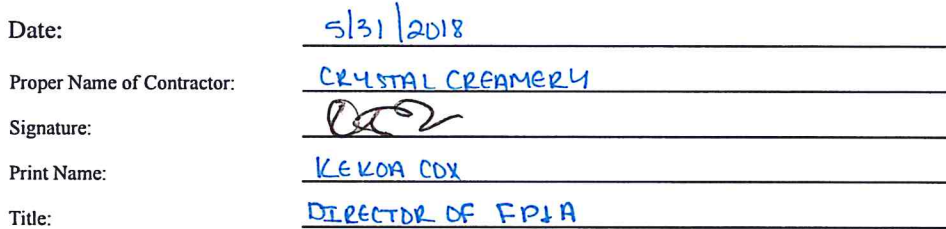 Date: 5/31/2018
Proper Name of Contractor: CRYSTAL CREAMERY
Signature:
Print Name: KEKOA COX
Title: DIRECTOR OF FP&A